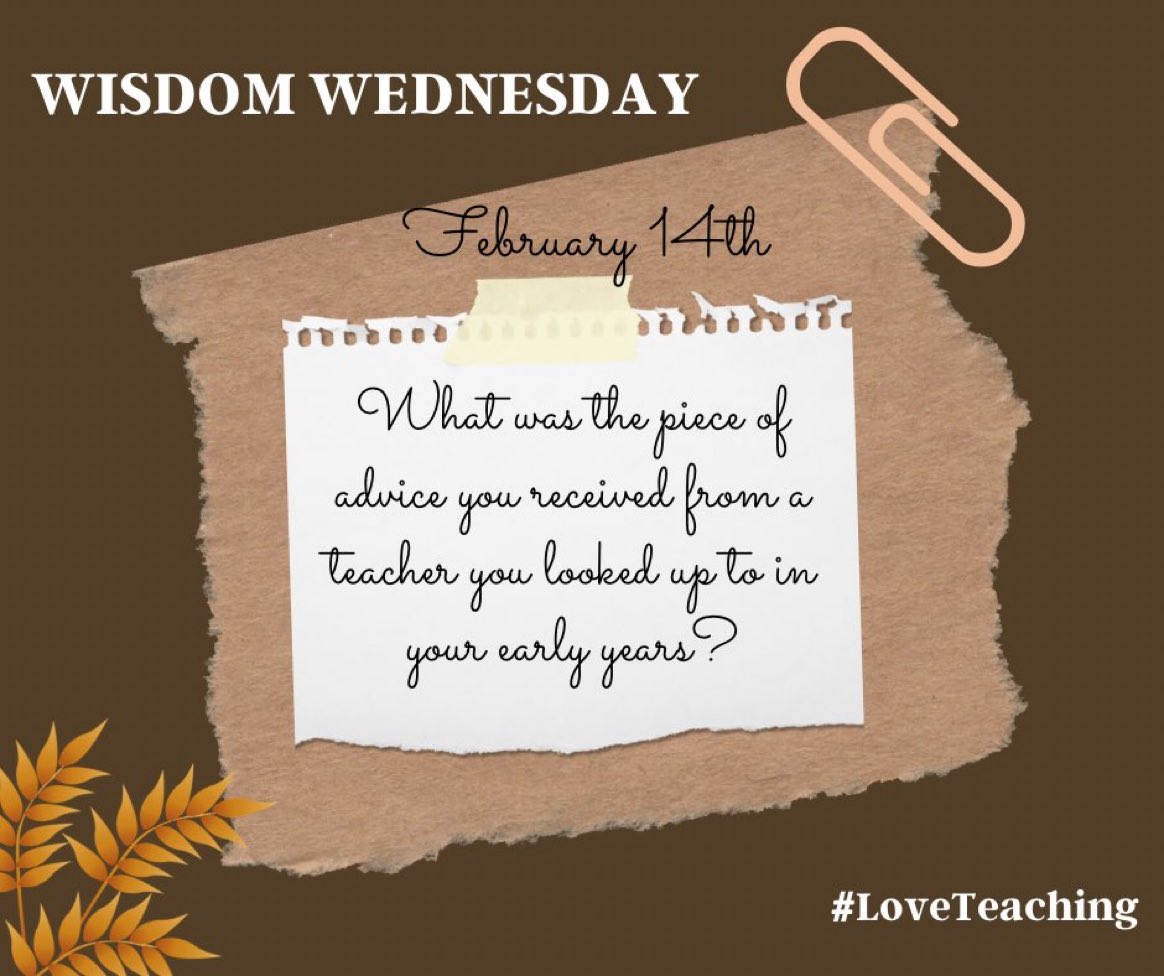 WISDOM WEDNESDAY
February 14th
What was the piece of
advice you received from a
teacher you looked up to in
your early years?
#LoveTeaching